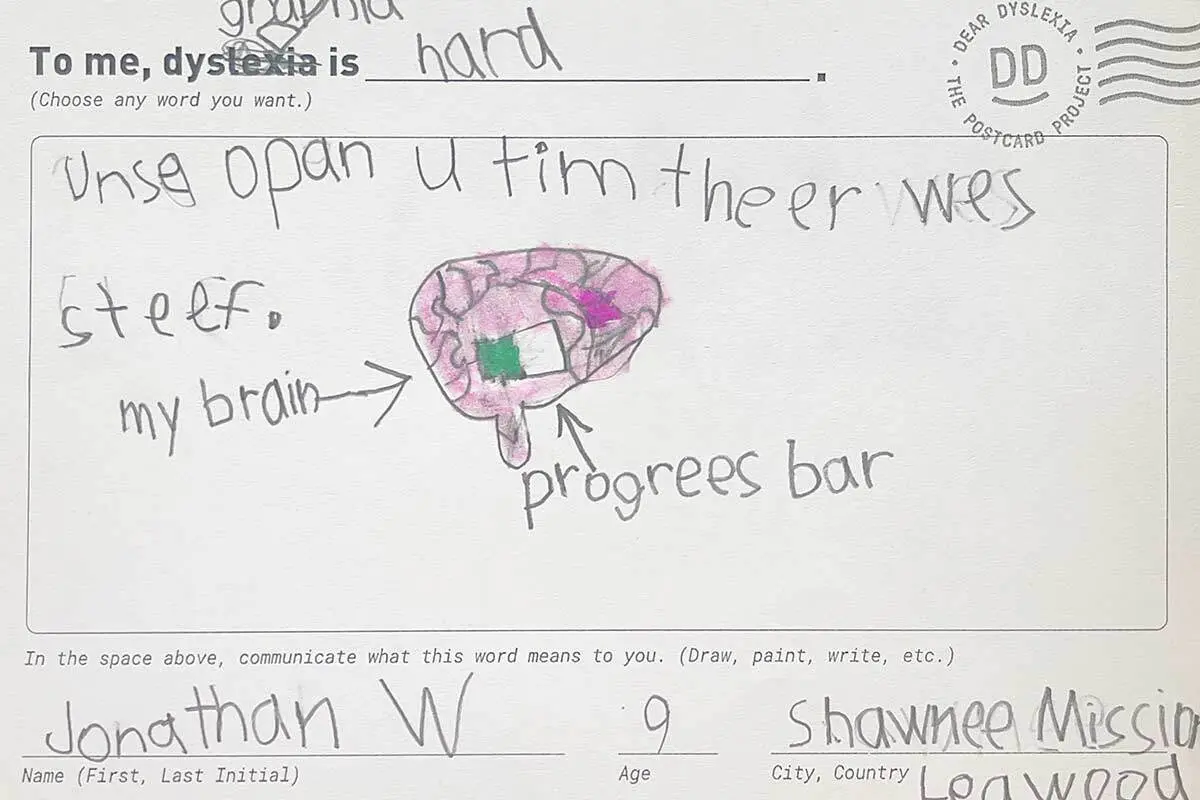 graphia
To me, dyslexia is hard.
(Choose any word you want.)
DEAR DYSLEXIA • THE POSTCARD PROJECT •
DD
Unse opan u tim theer wes
steef.
my brain
progrees bar
In the space above, communicate what this word means to you. (Draw, paint, write, etc.)
Jonathan W 9 Shawnee Missio
Name (First, Last Initial) Age City, Country Leawood